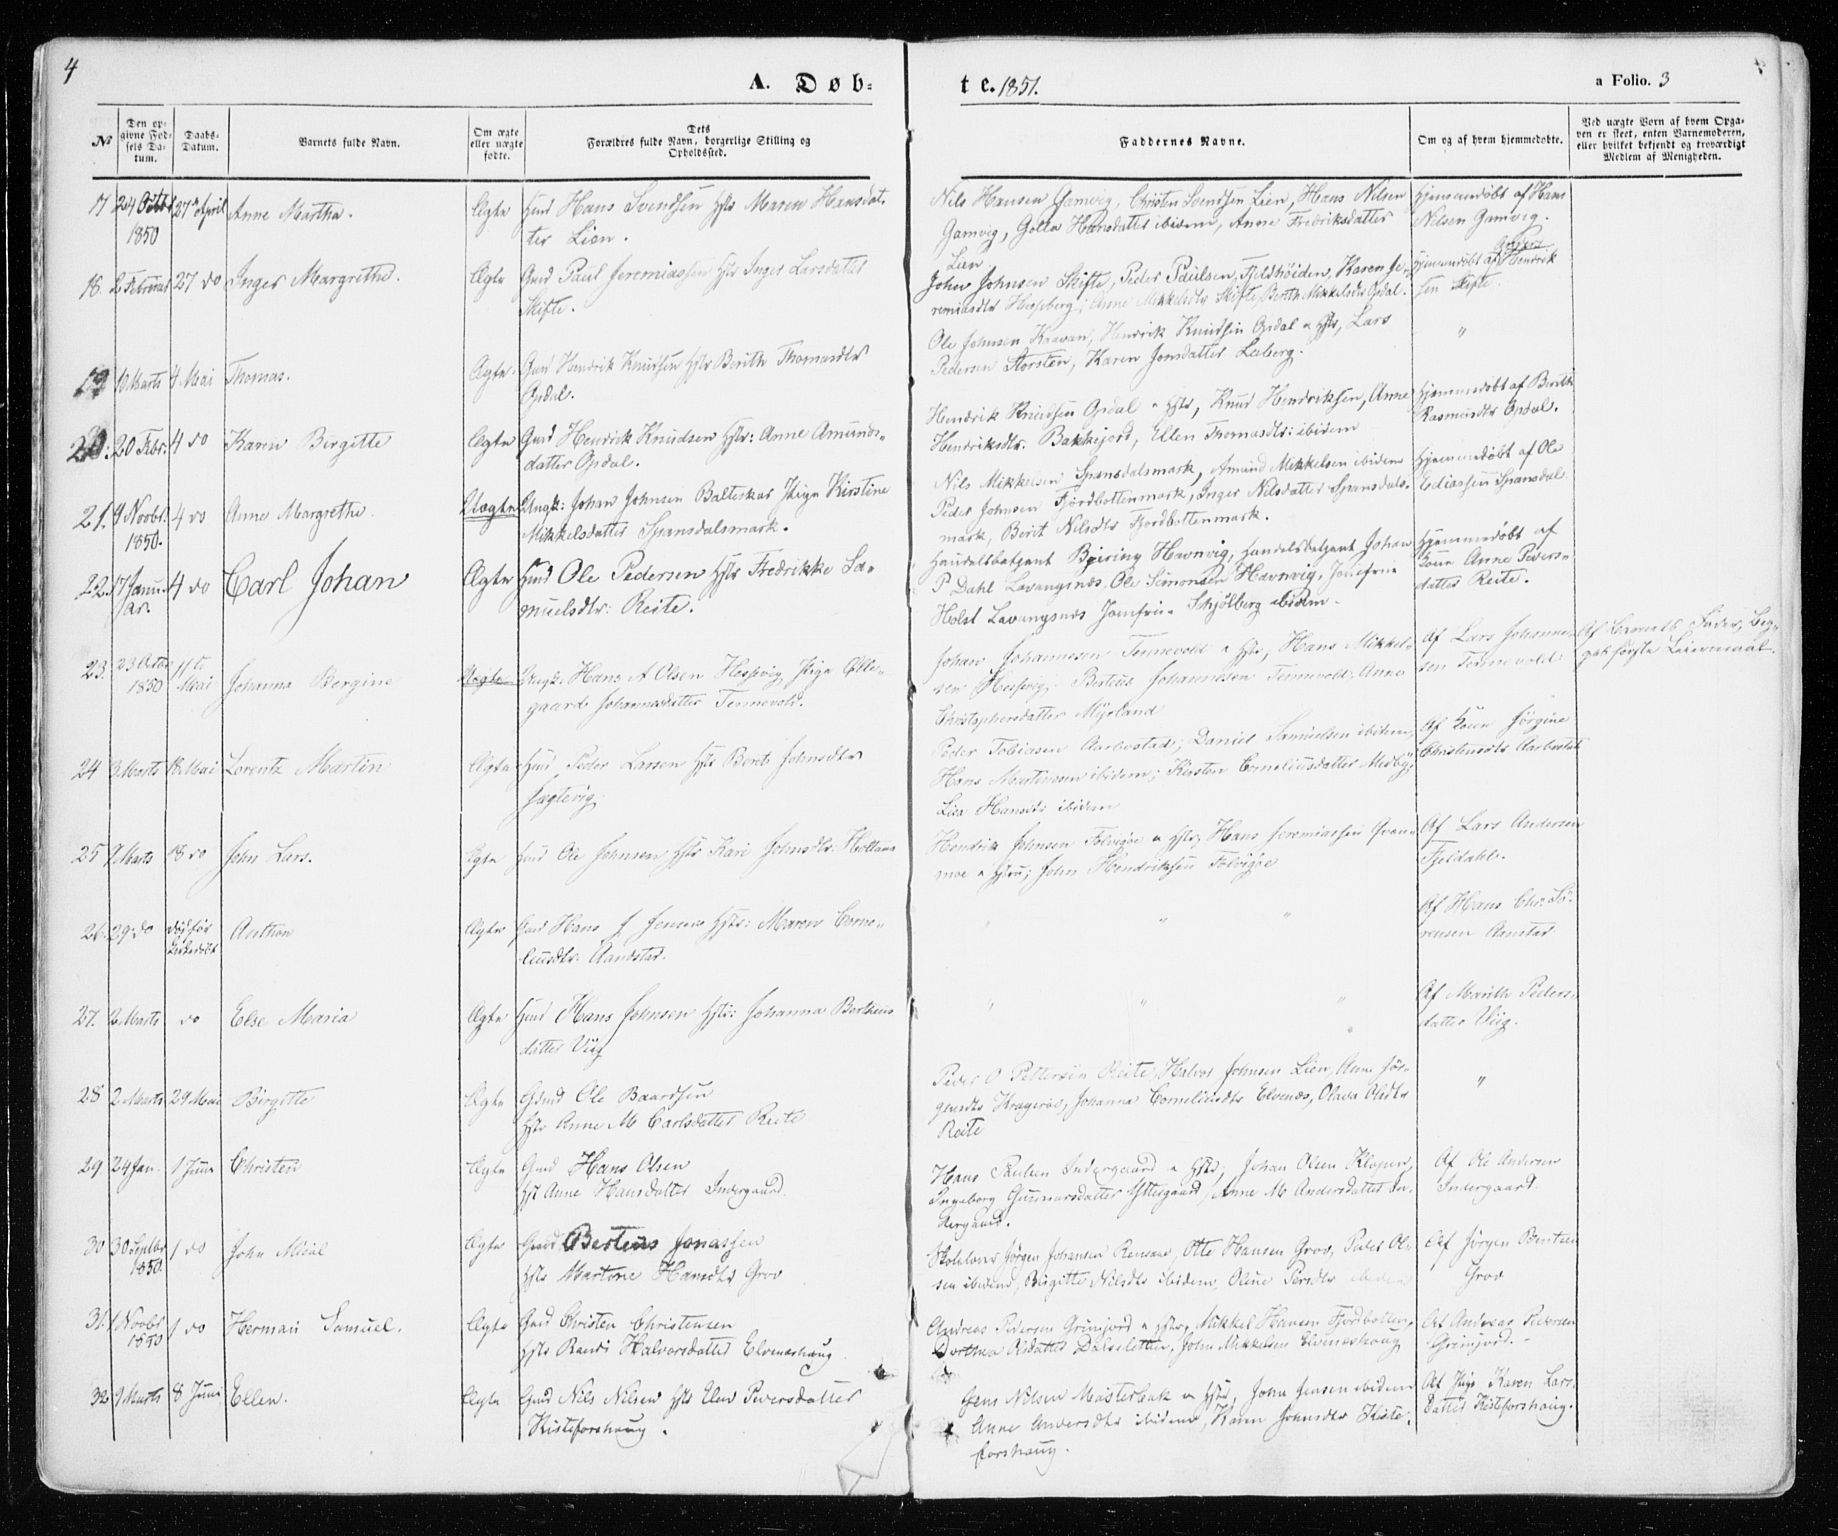 4
A. Døb-
te. 1851.
a Folio. 3
№
Den opgivne Fødsels Datum.
Daabs-Datum.
Barnets fulde Navn.
Om ægte eller uægte fødte.
Dets Forældres fulde Navn, borgerlige Stilling og Opholdssted.
Faddernes Navne.
Om og af hvem hjemmedøbte.
Ved uægte Børn af hvem Opgaven er skeet, enten Barnemoderen, eller hvilket bekjendt og troværdigt Medlem af Menigheden.
17 24 Octbr 1850 27de April Anne Martha. Ægte Hans Svendsen Hstr Maren Hansdat-
ter Lien.
Nils Hansen Gamvig, Christen Svendsen Lien, Hans Nilsen
Gamvig, Golla Hansdatter ibidem, Anne Fredriksdatter
Lien.
Hjemmedøbt af Hans
Nilsen Gamvig.
18. 2 Februar 27 do Inger Margrethe. Ægte Gmd Paul Jeremiassen Hstr Inger Larsdatter
Skifte.
John Johnsen Skifte, Peder Paulsen Fjeldhøiden, Karen Je-
remiasdtr Hesseberg, Anne Mikkelsdtr Skifte, Berith Mikkelsdtr Opdal.
Hjemmedøbt af Hendrik
sen Skifte.
19 10 Marts 4 Mai Thomas. Ægte Gmd Hendrik Knudsen Hstr Berith Thomasdtr
Opdal.
Ole Johnsen Kraavan, Hendrik Knudsen Opdal & Hstr, Lars
Pedersen Storsten, Karen Jonsdatter Leiberg.
"
20: 20 Febr: 4 do Karen Birgitte Ægte Gmd Hendrick Knudsen Hstr: Anne Amunds-
datter Opdal.
Hendrik Knudsen Opdal & Hstr, Knud Hendriksen, Anne
Hendriksdtr. Bakkejord, Ellen Thomasdtr: ibidem
Hjemmedøbt af Berith
Rasmusdtr Opdal.
21. 4 Novbr. 1850. 4 do Anne Margrethe. Uægte Ungk: Johan Johnsen Balteskar Pige Kirstine
Mikkelsdatter Spansdalsmark.
Nils Mikkelsen Spansdalsmark, Amund Mikkelsen ibidem
Peder Johnsen Fjordbottenmark, Inger Nilsdatter Spansdals-
mark, Berit Nilsdtr Fjordbottenmark.
Hjemmedøbt af Ole
Ediassen Spansdal.
22. 17 Janu-
ar. 4 do Carl Johan Ægte Gmd Ole Pedersen Hstr Fredrikke Sa-
muelsdtr: Reite.
Handelsbetjent Beiring Havnvig, Handelsbetjent Johan
P Dahl Lavangsnæs, Ole Simonsen Havnvig, Jomfrue
Holst Lavangsnæs Jomfrue Schjølberg ibidem.
Hjemmedøbt af
Koen Anne Peders-
datter Reite.
23. 23 Octbr 1850 11te Mai Johanna Bergine Uægte Ungk. Hans A Olsen Hespevig, Pige Olle-
gaard Johannesdatter Tennevold.
Johan Johannesen Tennevold & Hstr, Hans Mikkel-
sen Hespevig, Berteus Johannesen Tennevold, Anne
Christophersdatter Myrland
Af Lars Johanne-
sen Tennevold
Af Barnets Fader, Beg-
ges første Leiermaal.
24 3 Marts 18 Mai Lorentz Martin Ægte Hmd Peder Larsen Hstr Berit Johnsdtr
Jægtevig
Peder Tobiasen Aarbostad, Daniel Samuelsen ibidem,
Hans Martinsen ibidem, Kirsten Corneliusdatter Medby,
Lisa Hansdtr ibidem
Af Koen Jørgine
Christensdtr Aarbostad
25 9 Marts 18 do John Lars. Ægte Gmd Ole Johnsen Hstr Kari Johnsdtr:
Hendrik Johnsen Folvigøe & Hstr, Hans Jeremiassen Gran-
moe & Hstru; John Hendriksen Folvigøe
Af Lars Andersen
Fjeldahl.
26. 29 do død før Anthon Ægte Gmd Hans J Jensen Hstr: Maren Corne-
liusdtr Aanstad.
" " "
Af Hans Chr. Sø-
rensen Aanstad
27. 2 Marts do Else Maria Ægte Gmd Hans Johnsen Hstr: Johanna Bertheus
datter Viig
" " "
Af Marith Peders-
datter Viig.
28 2 Marts 29 Mai Birgitte Ægte Gdmd Ole Baardsen
Hstr Anne M Carlsdatter Reite
Peder O Pettersen Reite, Halvor Johnsen Lien, Anne Jør-
gensdtr Kragerøe, Johanna Corneliusdtr Elvenæs, Olava Olsdtr
Reite
"
29. 24 Jan. 1 Juni Christen Ægte Gmd Hans Olsen
Hst Anne Hansdatter Indergaard.
Hans Paulsen Indergaard & Hstr, Johan Olsen Kloperi,
Ingeborg Gunnarsdatter Yttergaard, Anne M Andersdatter In-
dergaard.
Af Ole Andersen
Indergaard.
30 30 Septbr 1850. 1 do John Mical Ægte Gmd Berteus Jonassen
Hstr Martine Hansdtr Grov
Skolelærer Jørgen Johansen Rensaae, Otte Hansen Grov, Peder Ol-
sen ibidem, Birgitte Nilsdtr ibidem, Oline Persdtr ibidem
Af Jørgen Bentsen
Grov
31. 1 Novbr 1850 1 do Herman Samuel. Ægte Gmd Christen Christensen
Hstr Randi Halvorsdatter Elvenæshaug
Andreas Pedersen Grunjord & Hstr, Mikkel Hansen Fjordbotten,
Dorthea Olsdatter Dalsletten, John Mikkelsen Elveneshaug
Af Andreas Pedersen
Grunjord.
32 9 Marts 8 Juni Ellen. Ægte Gmd Nils Nilsen Hstr Elen Pedersdatter
Kisteforshaug.
Jens Nilsen Mosterbak & Hstr, John Jensen ibidem
Anne Andersdtr ibidem, Karen Johnsdtr Kiste-
forshaug.
Af Pige Karen Lars
Datter Kisteforshaug.